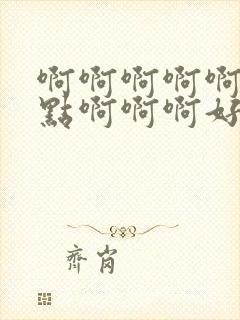 啊啊啊啊啊
點啊啊啊好
齊肖